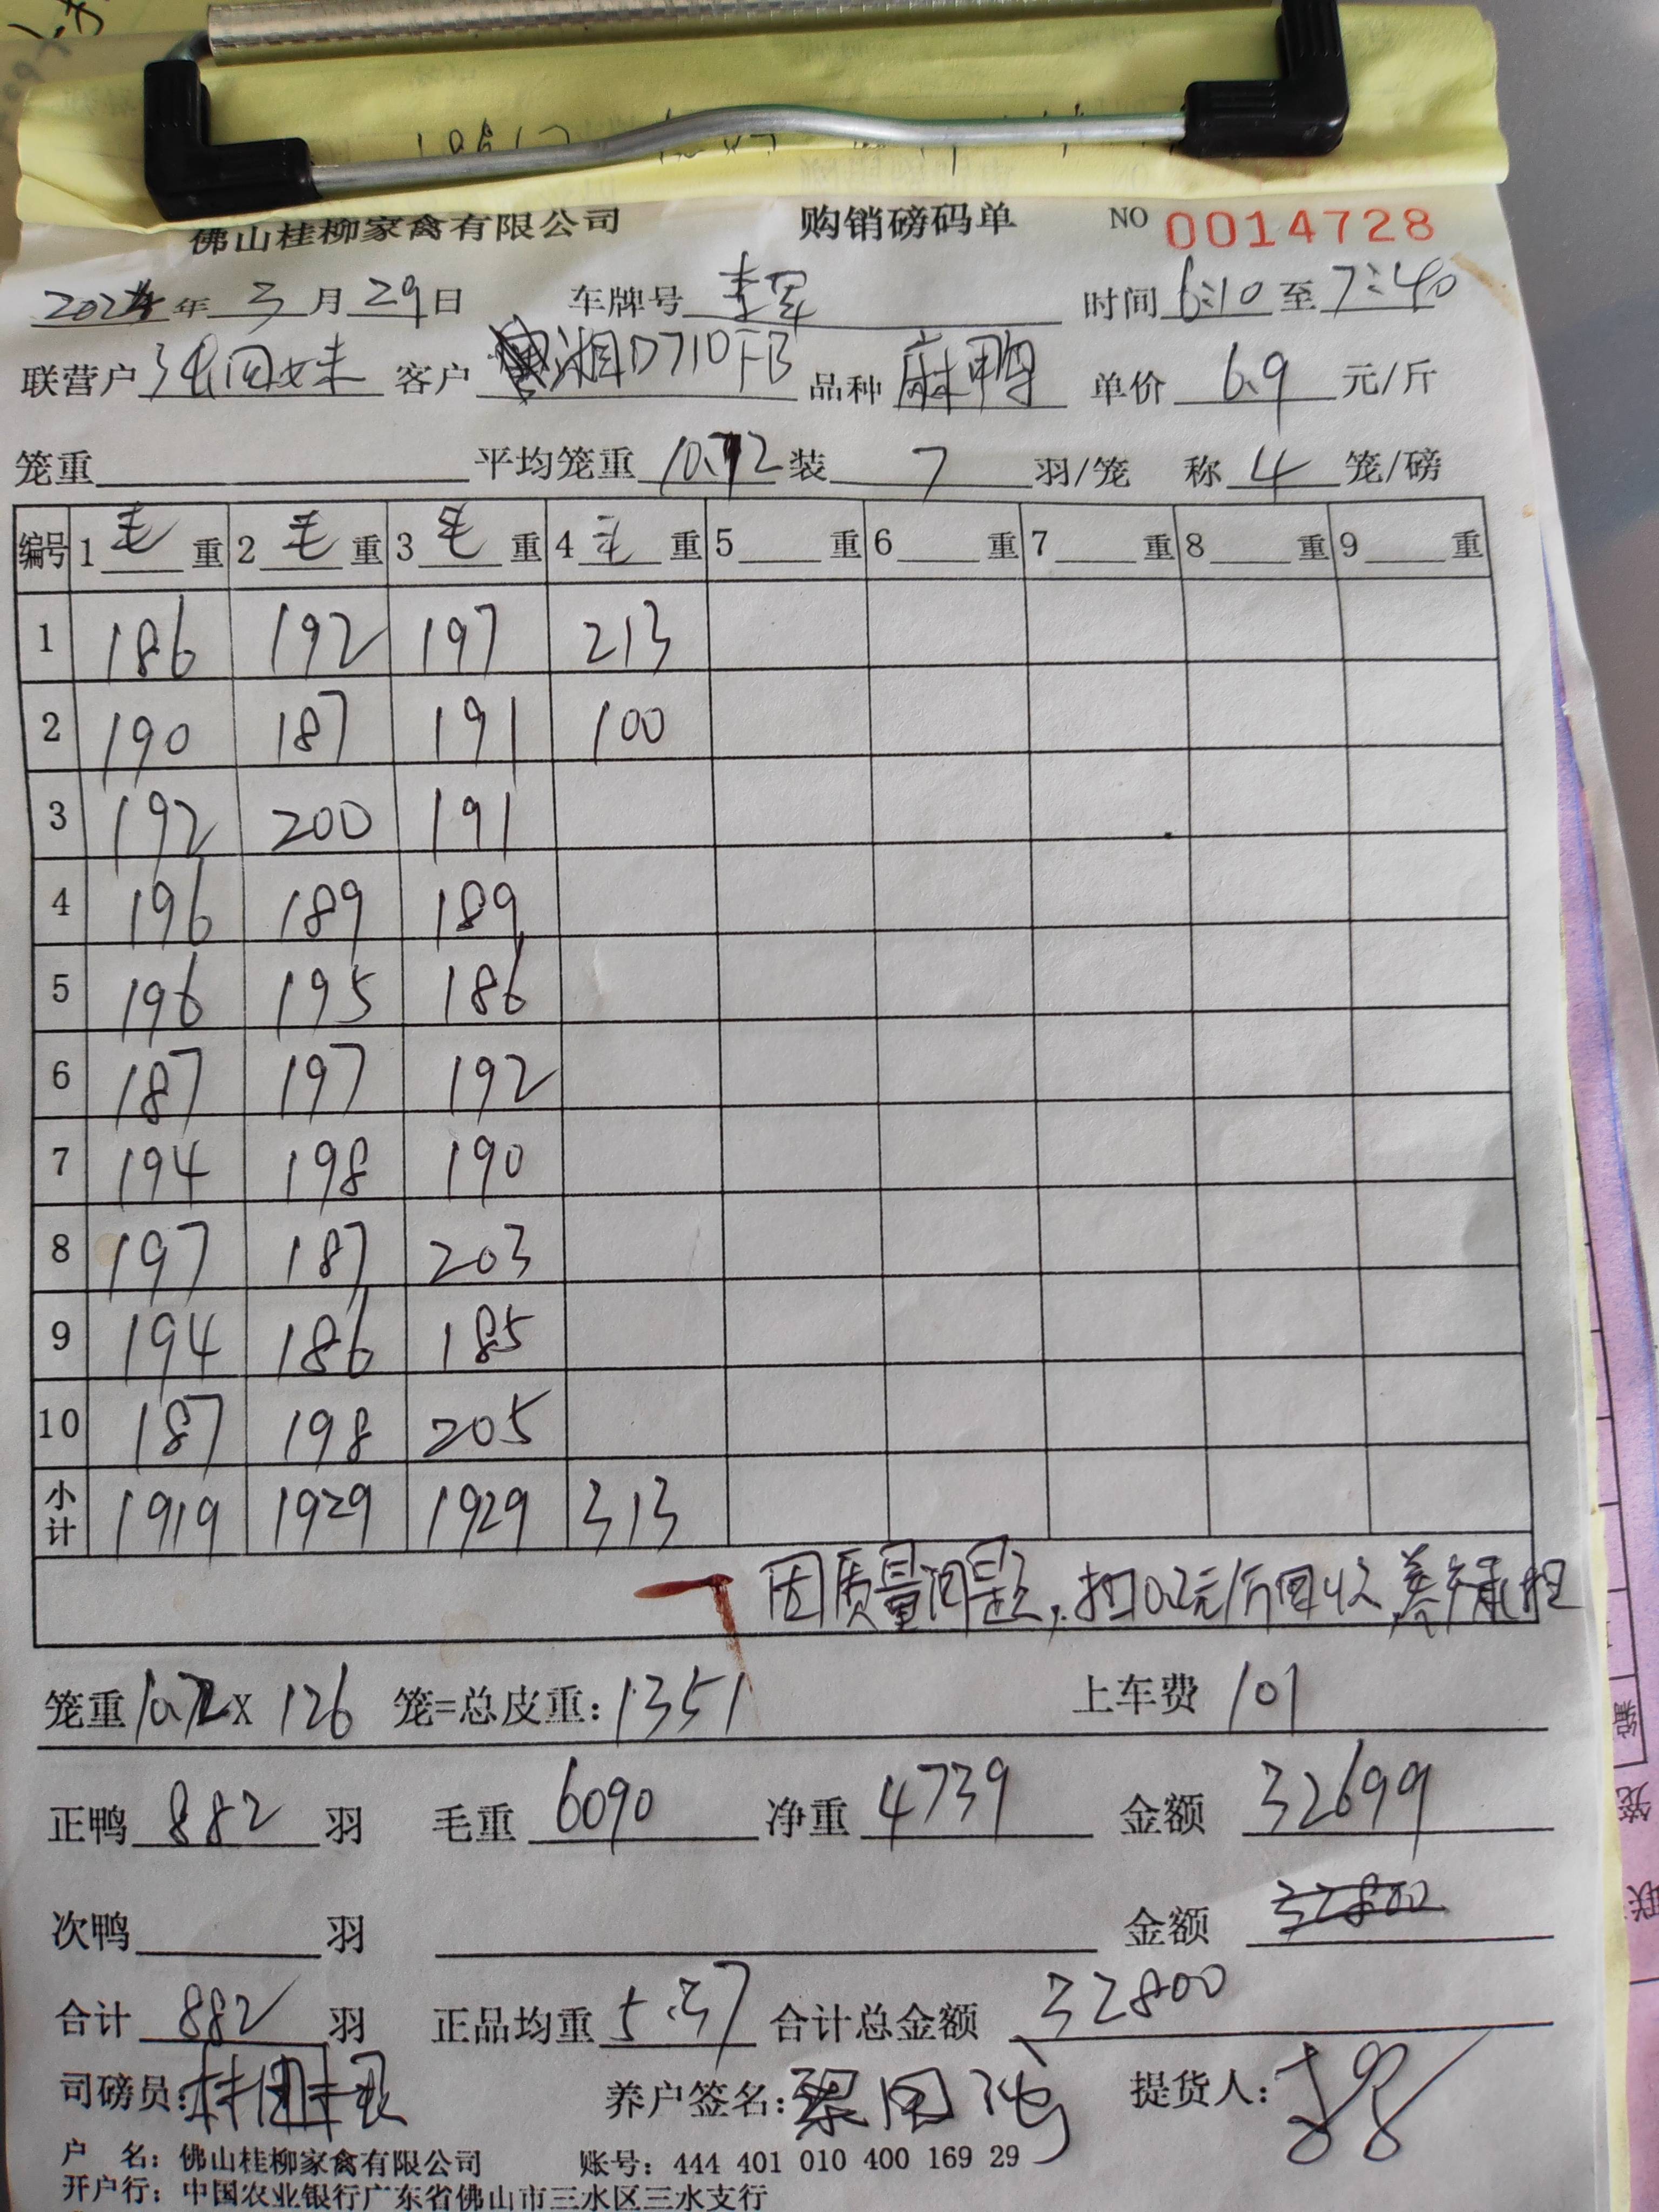 佛山桂柳家禽有限公司 购销磅码单 NO 0014728
2024年 3月29日 车牌号 李军 时间 6:10 至 7:40
联营户 客户 湘D710FB 品种 麻鸭 单价 6.9 元/斤
笼重 平均笼重 10.72 装 7 羽/笼 称 4 笼/磅
编号 1 毛 重 2 毛 重 3 毛 重 4 毛 重 5 重 6 重 7 重 8 重 9 重
1 186 192 197 213
2 190 187 191 100
3 192 200 191
4 196 189 189
5 196 195 186
6 187 197 192
7 194 198 190
8 197 187 203
9 194 186 185
10 187 198 205
小计 1919 1929 1929 313
因质量问题,扣0.2元/斤回收,养户承担
笼重 10.72 X 126 笼=总皮重: 1351 上车费 101
正鸭 882 羽 毛重 6090 净重 4739 金额 32699
次鸭 羽 金额 32800
合计 882 羽 正品均重 5.37 合计总金额 32800
司磅员: 养户签名: 提货人:
户 名: 佛山桂柳家禽有限公司 账号: 444 401 010 400 169 29
开户行: 中国农业银行广东省佛山市三水区三水支行